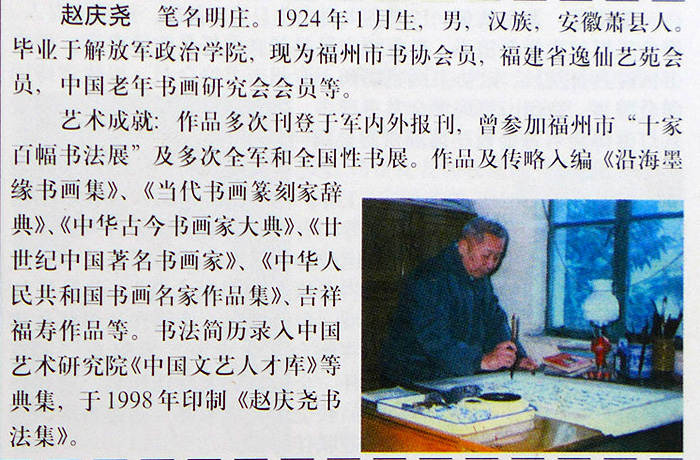 赵庆尧　笔名明庄。1924年1月生，男，汉族，安徽萧县人。
毕业于解放军政治学院，现为福州市书协会员，福建省逸仙艺苑会
员，中国老年书画研究会会员等。
艺术成就：作品多次刊登于军内外报刊，曾参加福州市“十家
百幅书法展”及多次全军和全国性书展。作品及传略入编《沿海墨
缘书画集》、《当代书画篆刻家辞
典》、《中华古今书画家大典》、《廿
世纪中国著名书画家》、《中华人
民共和国书画名家作品集》、吉祥
福寿作品等。书法简历录入中国
艺术研究院《中国文艺人才库》等
典集，于1998年印制《赵庆尧书
法集》。